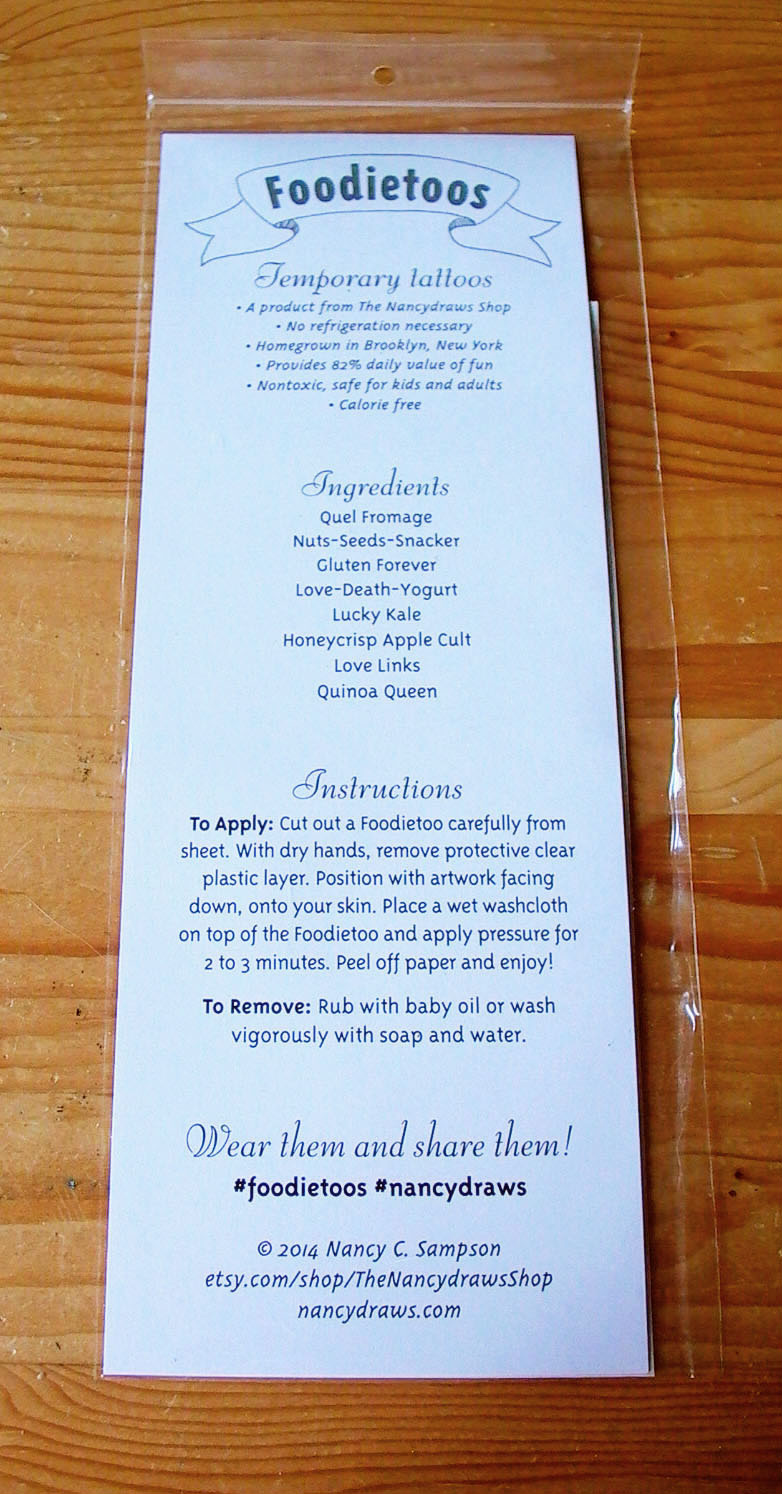 Foodietoos
Temporary tattoos
• A product from The Nancydraws Shop
• No refrigeration necessary
• Homegrown in Brooklyn, New York
• Provides 82% daily value of fun
• Nontoxic, safe for kids and adults
• Calorie free
Ingredients
Quel Fromage
Nuts-Seeds-Snacker
Gluten Forever
Love-Death-Yogurt
Lucky Kale
Honeycrisp Apple Cult
Love Links
Quinoa Queen
Instructions
To Apply: Cut out a Foodietoo carefully from
sheet. With dry hands, remove protective clear
plastic layer. Position with artwork facing
down, onto your skin. Place a wet washcloth
on top of the Foodietoo and apply pressure for
2 to 3 minutes. Peel off paper and enjoy!
To Remove: Rub with baby oil or wash
vigorously with soap and water.
Wear them and share them!
#foodietoos #nancydraws
© 2014 Nancy C. Sampson
etsy.com/shop/TheNancydrawsShop
nancydraws.com